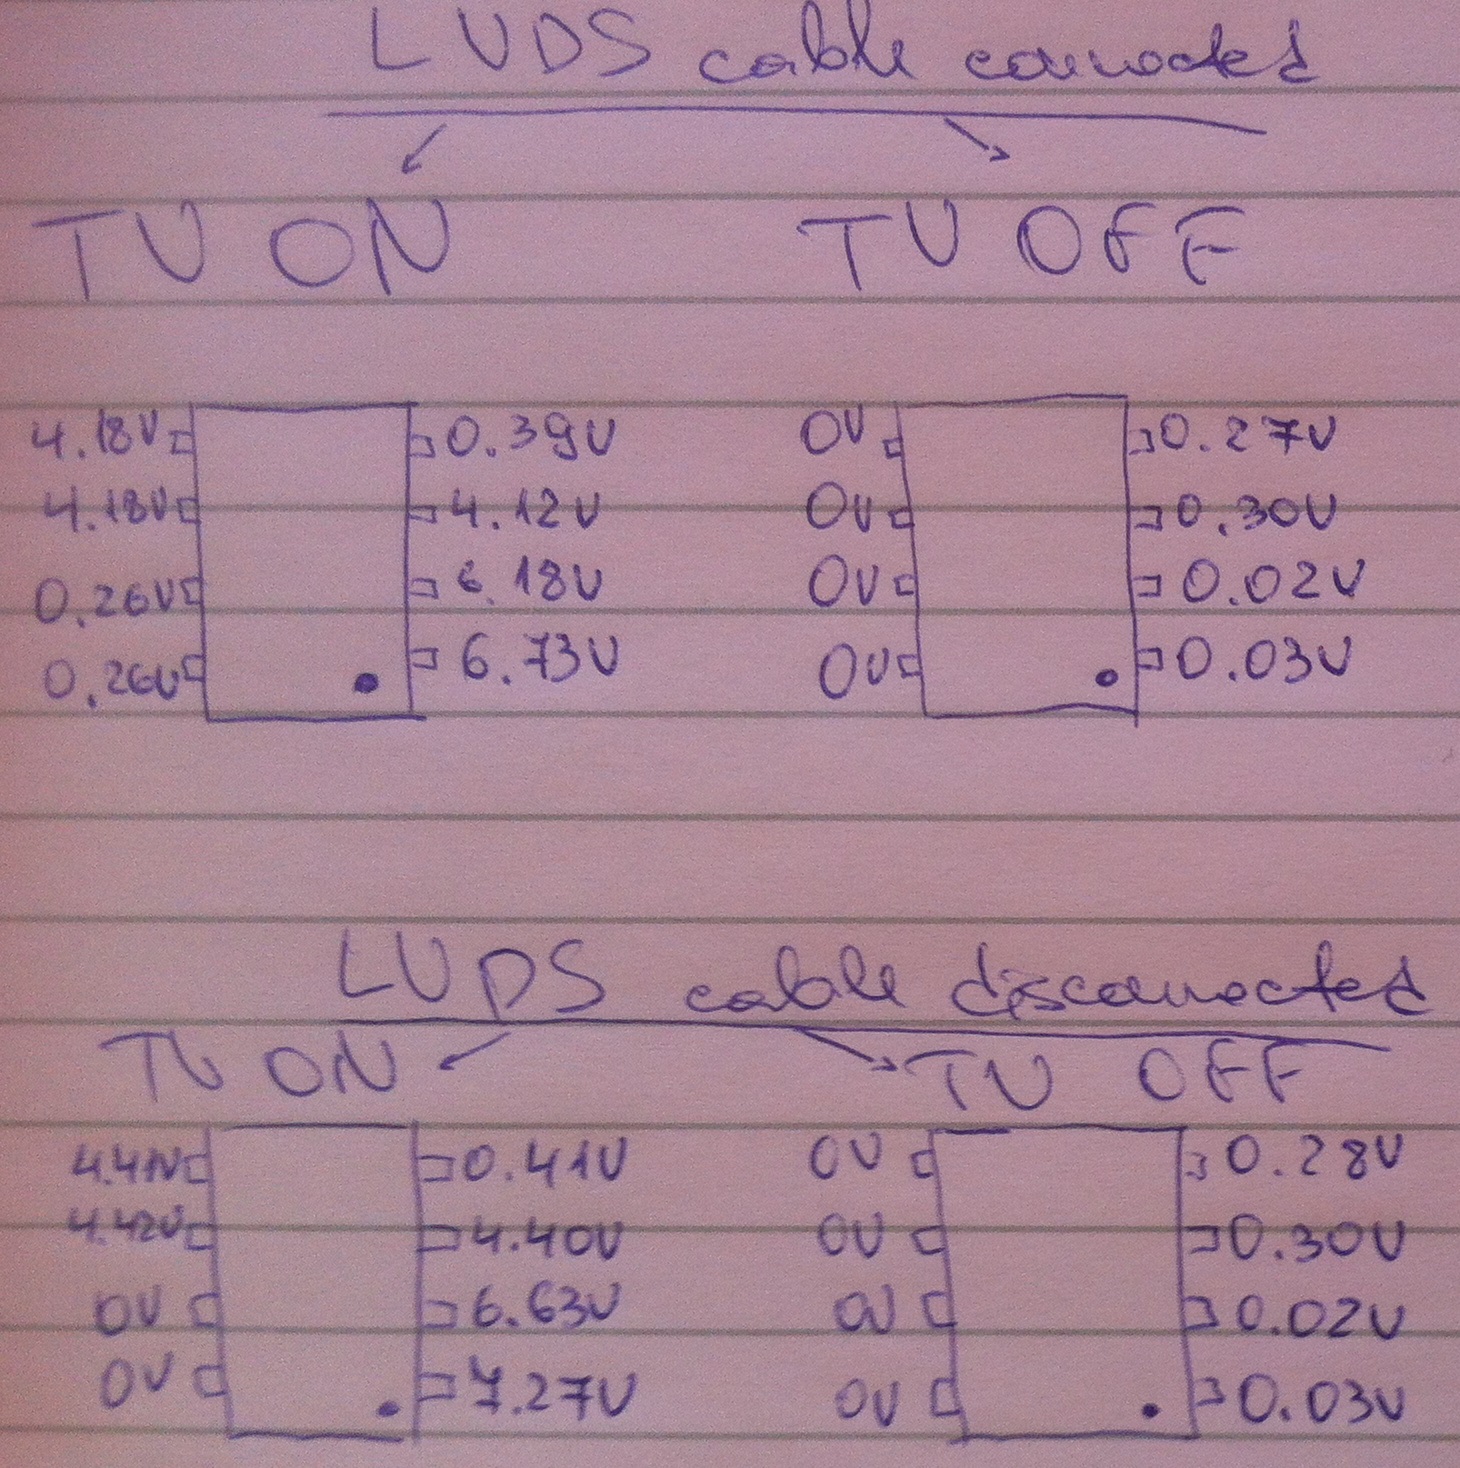 LVDS cable connected
TV ON TV OFF
4.18V 0.39V 0V 0.27V
4.18V 4.12V 0V 0.30V
0.26V 6.18V 0V 0.02V
0.26V 6.73V 0V 0.03V
LVDS cable disconnected
TV ON TV OFF
4.41V 0.41V 0V 0.28V
4.42V 4.40V 0V 0.30V
0V 6.63V 0V 0.02V
0V 7.27V 0V 0.03V